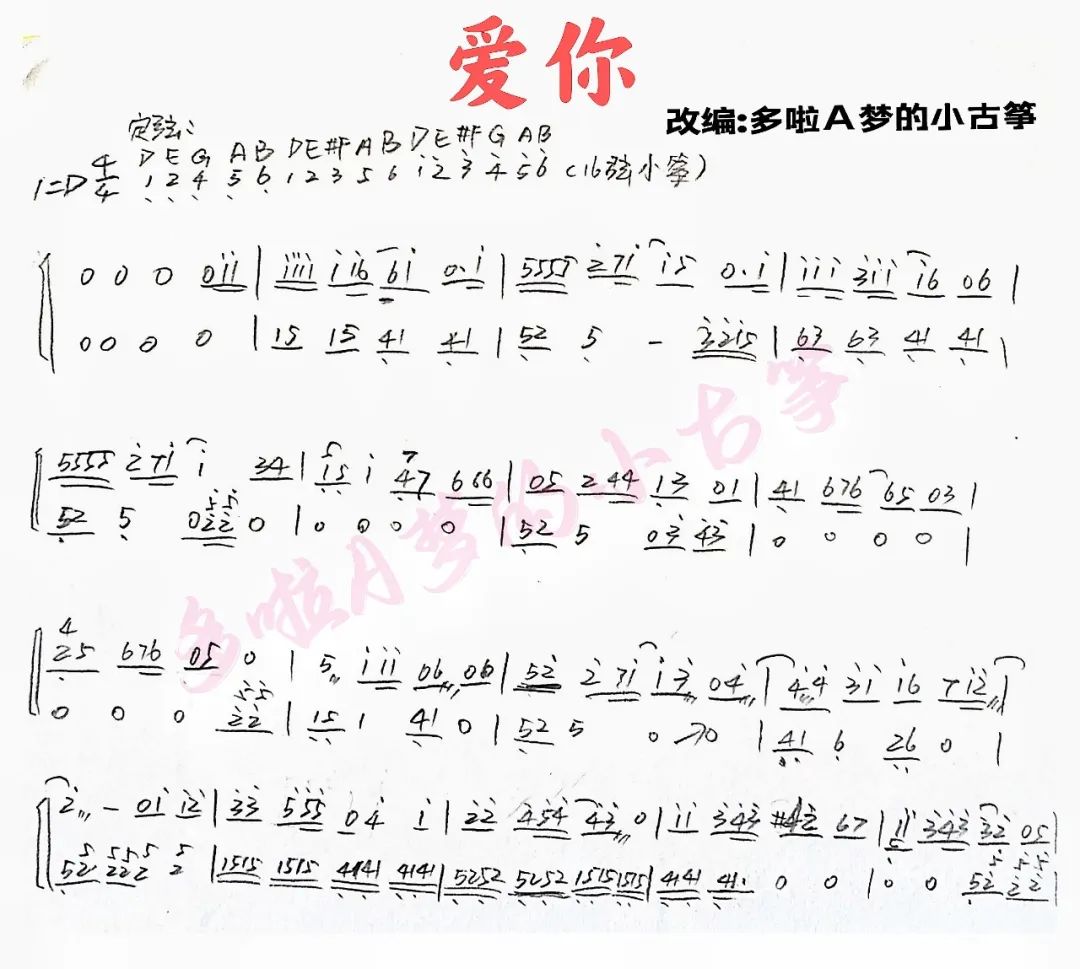 爱你
改编:多啦A梦的小古筝
定弦:
D E G A B D E #F A B D E #F G A B
1=D 4/4 1 2 4 5 6 1 2 3 5 6 1 2 3 4 5 6 (16弦小筝)
0 0 0 011 | 1111 116 61 0.1 | 5555 271 15 0.1 | 111 3111 16 06 |
0 0 0 0 | 15 15 41 41 | 52 5 - 3215 | 63 63 41 41 |
5555 271 1 34 | 15 1 47 666 | 05 244 13 01 | 41 676 65 03 |
52 5 022 0 | 0 0 0 0 | 52 5 03 43 | 0 0 0 0 |
25 676 05 0 | 5 111 06 06 | 52 271 13 04 | 44 31 16 712 |
0 0 0 22 | 15 1 41 0 | 52 5 0 0 | 41 6 26 0 |
2 - 01 12 | 33 555 04 1 | 22 454 43 0 | 11 343 #42 67 | 11 343 32 05 |
52 222 2 | 1515 1515 4141 4141 | 5252 5252 1515 1515 | 4141 41. 0 0 | 0 0 52 22 |
多啦A梦的小古筝